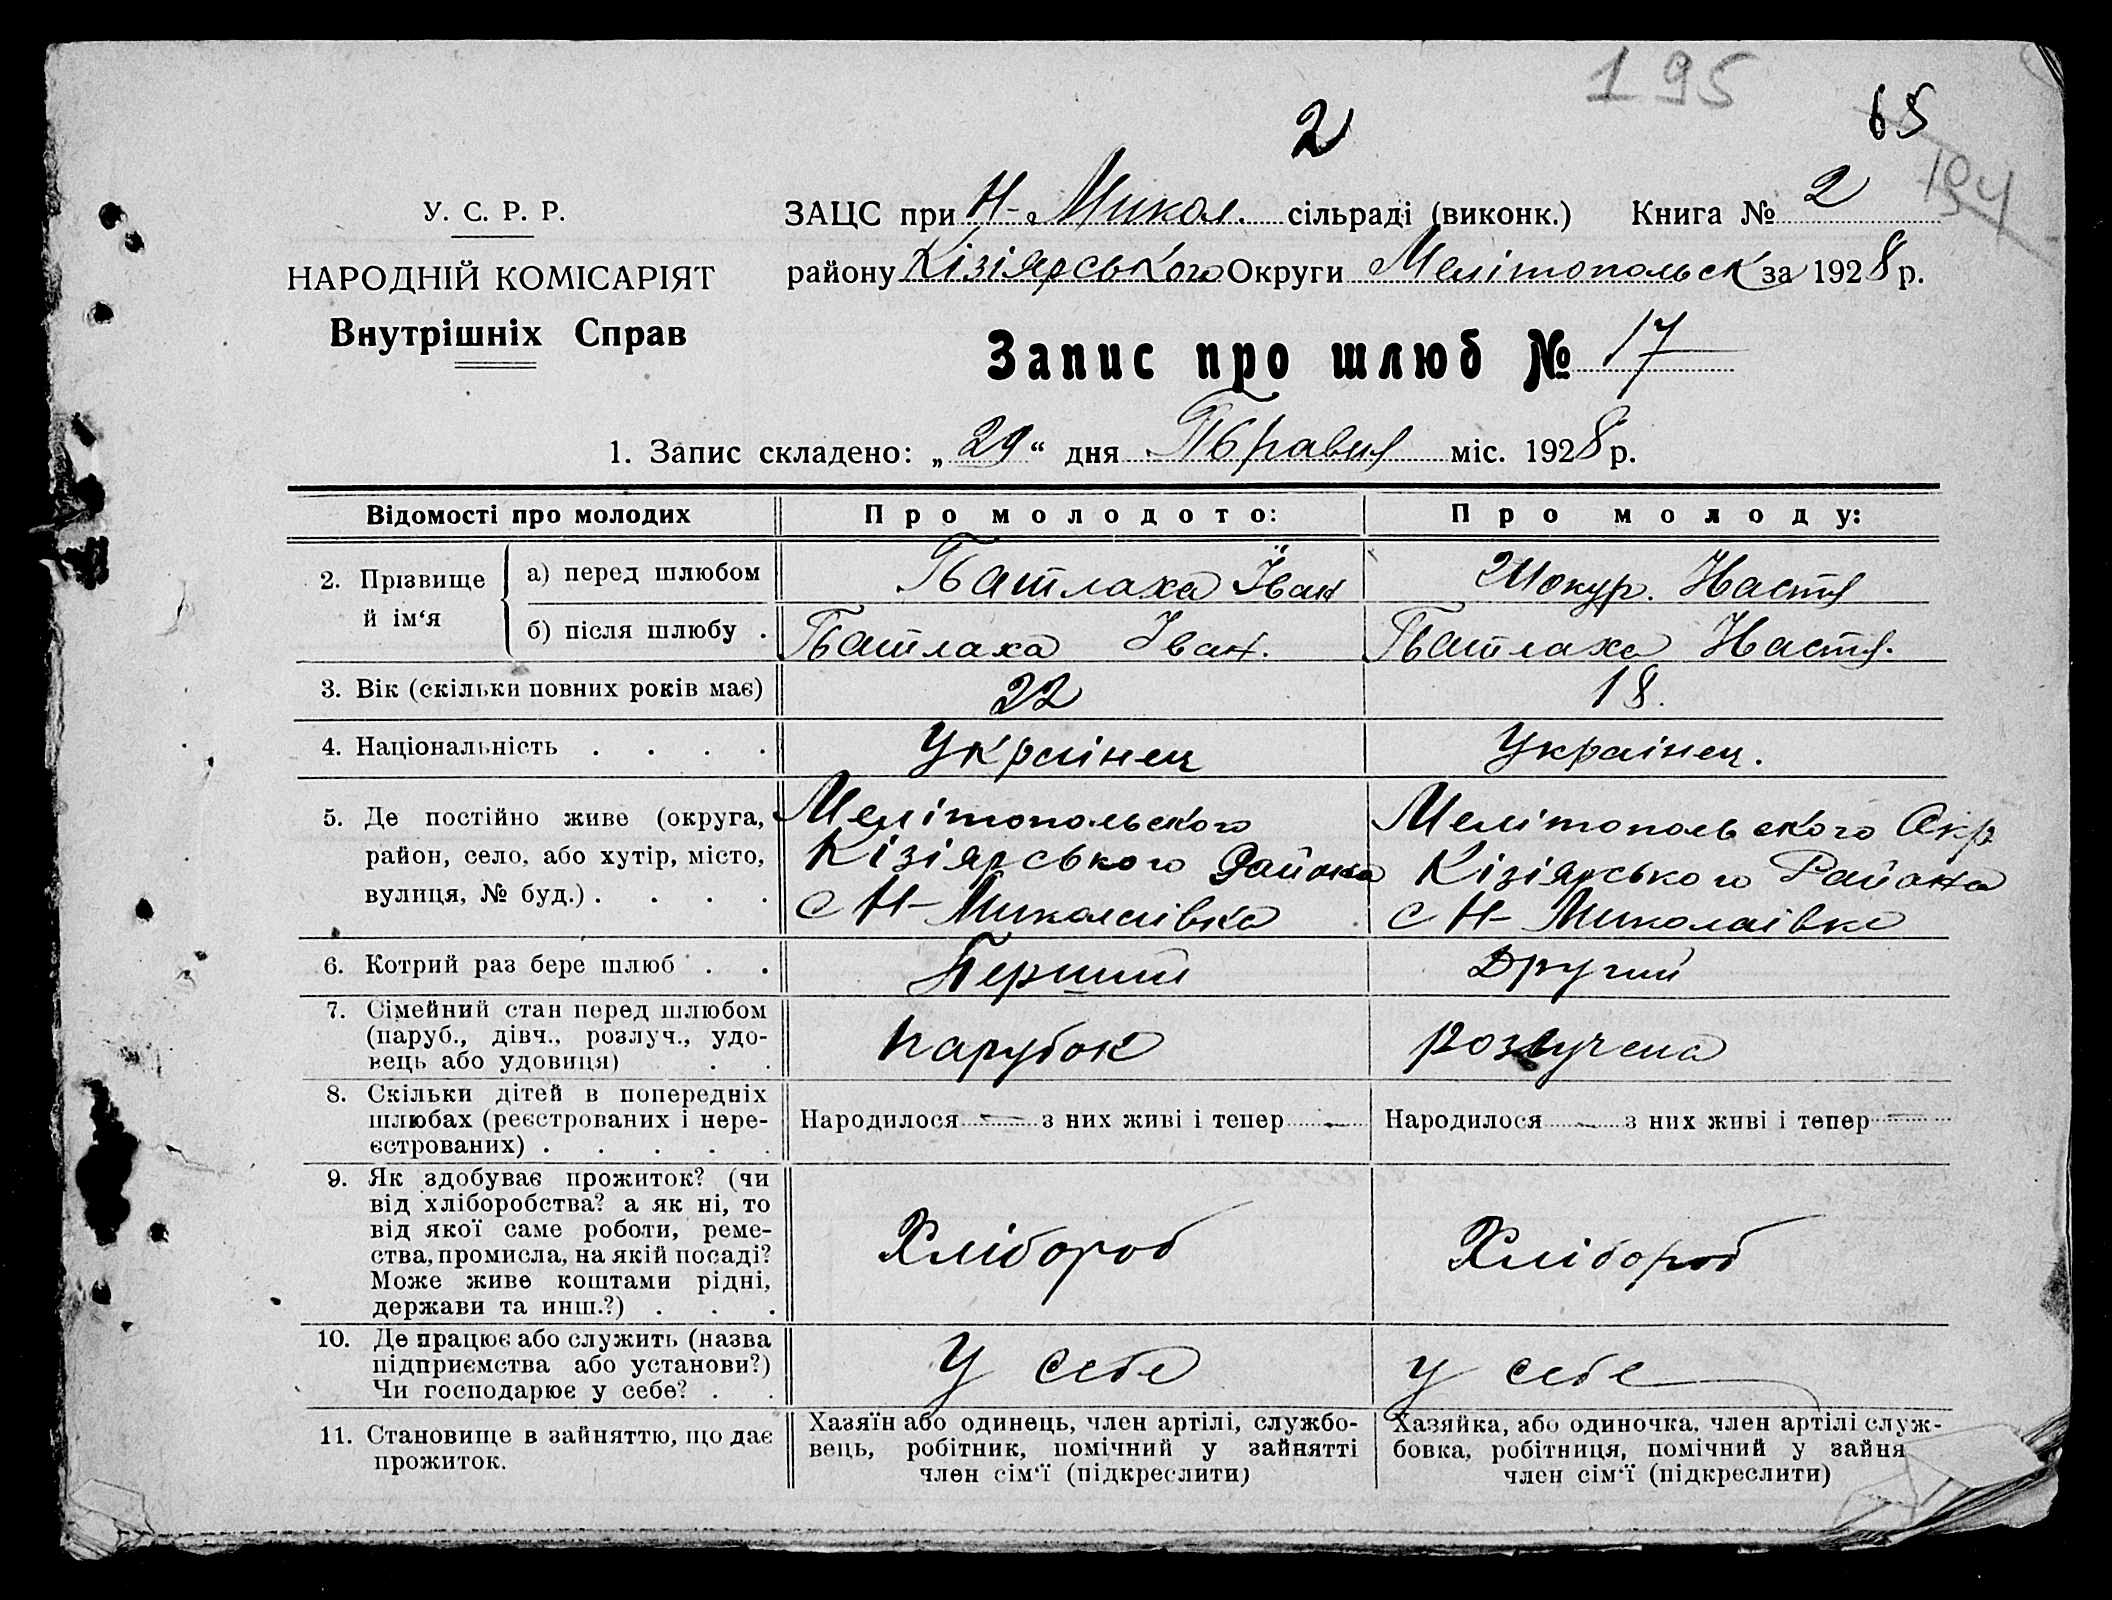 195
65
2
194
У. С. Р. Р.
ЗАЦС при Н-Микол. сільраді (виконк.) Книга № 2
НАРОДНІЙ КОМІСАРІЯТ
району Кізіярського Округи Мелітопольск за 1928 р.
Внутрішніх Справ
Запис про шлюб № 17
1. Запис складено: „29“ дня міс. 1928 р.
Відомості про молодих
Про молодого:
Про молоду:
2. Прізвище й ім‘я
а) перед шлюбом
Батлаха Іван
Шокур. Настя
б) після шлюбу .
Батлаха Іван.
Батлаха Настя.
3. Вік (скільки повних років має)
22
18.
4. Національність . . . .
Украінец
Украінец.
5. Де постійно живе (округа,
район, село, або хутір, місто,
вулиця, № буд.) . . . .
Мелітопольского
Кізіярського Района
с Н-Миколаівка
Мелітопольского Окр
Кізіярського Района
с Н-Миколаівка
6. Котрий раз бере шлюб . .
Перший
Другий
7. Сімейний стан перед шлюбом
(паруб., дівч., розлуч., удо-
вець або удовиця) . .
парубок
розлучена
8. Скільки дітей в попередніх
шлюбах (реєстрованих і нере-
єстрованих) . . . . .
Народилося — з них живі і тепер —
Народилося — з них живі і тепер —
9. Як здобуває прожиток? (чи
від хліборобства? а як ні, то
від якої саме роботи, реме-
ства, промисла, на якій посаді?
Може живе коштами рідні,
держави та инш.?) . . .
Хлібороб
Хлібороб
10. Де працює або служить (назва
підприємства або установи?)
Чи господарює у себе? . .
У себе
у себе
11. Становище в зайняттю, що дає
прожиток.
Хазяїн або одинець, член артілі, службо-
вець, робітник, помічний у зайнятті
член сім‘ї (підкреслити)
Хазяйка, або одиночка, член артілі служ-
бовка, робітниця, помічний у зайня
член сім‘ї (підкреслити)